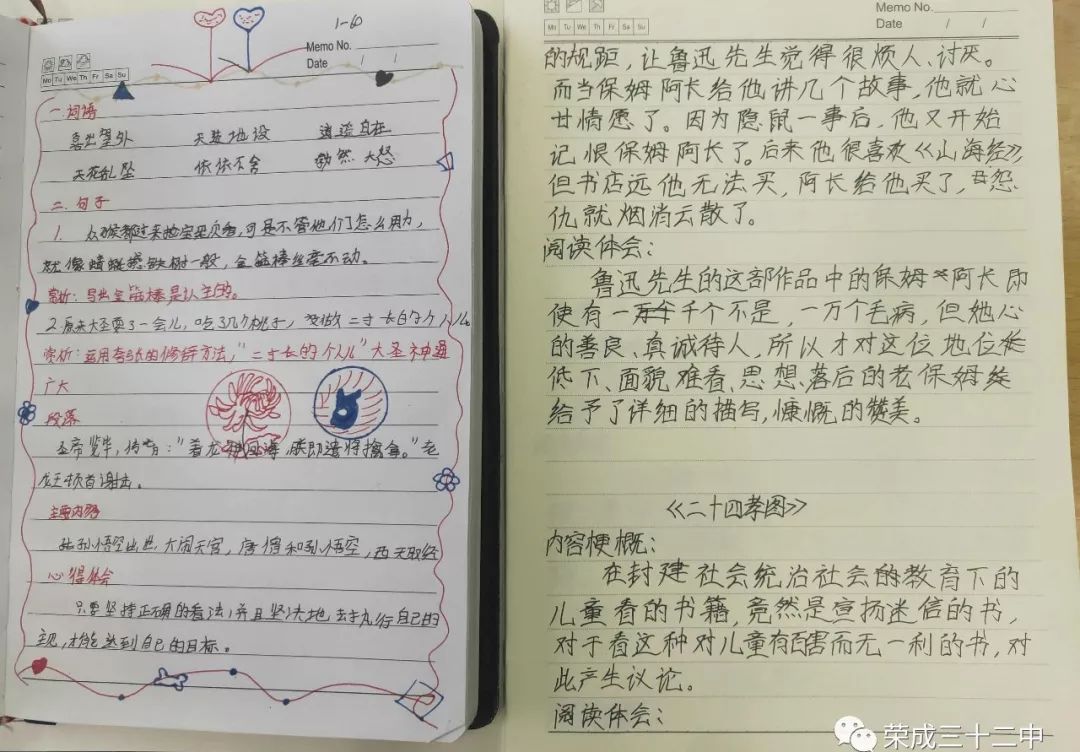 1-60
Memo No.
Date / /
Mo Tu We Th Fr Sa Su
一.词语
喜出望外 天造地设 逍遥自在
天花乱坠 依依不舍 勃然大怒
二.句子
1. 众猴都过来抬宝贝看,可是不管他们怎么用力,
就像蜻蜓撼铁树一般,金箍棒丝毫不动。
赏析:写出金箍棒是认主的。
2.原来大圣耍了一会儿,吃了几个桃子,变做二寸长的个人儿。
赏析:运用夸张的修辞方法,"二寸长的个人儿"大圣神通
广大
段落
玉帝览毕,传旨:"着龙神回海,朕即遣将擒拿。"老
龙王顿首谢去。
主要内容
孙悟空出世,大闹天宫,唐僧和孙悟空,西天取经
心得体会
只要坚持正确的看法,并且坚决地去执行自己的
主观,才能达到自己的目标。
Memo No.
Mo Tu We Th Fr Sa Su
Date / /
的规距,让鲁迅先生觉得很烦人、讨厌。
而当保姆阿长给他讲几个故事,他就心
甘情愿了。因为隐鼠一事后,他又开始
记恨保姆阿长了。后来他很喜欢《山海经》,
但书店远他无法买,阿长给他买了,怨
仇就烟消云散了。
阅读体会:
鲁迅先生的这部作品中的保姆阿长即
使有一千个不是,一万个毛病,但她心
的善良、真诚待人,所以才对这位地位
低下、面貌难看、思想落后的老保姆
给予了详细的描写,慷慨的赞美。
《二十四孝图》
内容梗概:
在封建社会统治社会的教育下的
儿童看的书籍,竟然是宣扬迷信的书,
对于看这种对儿童有百害而无一利的书,对
此产生议论。
阅读体会:
荣成三十二中